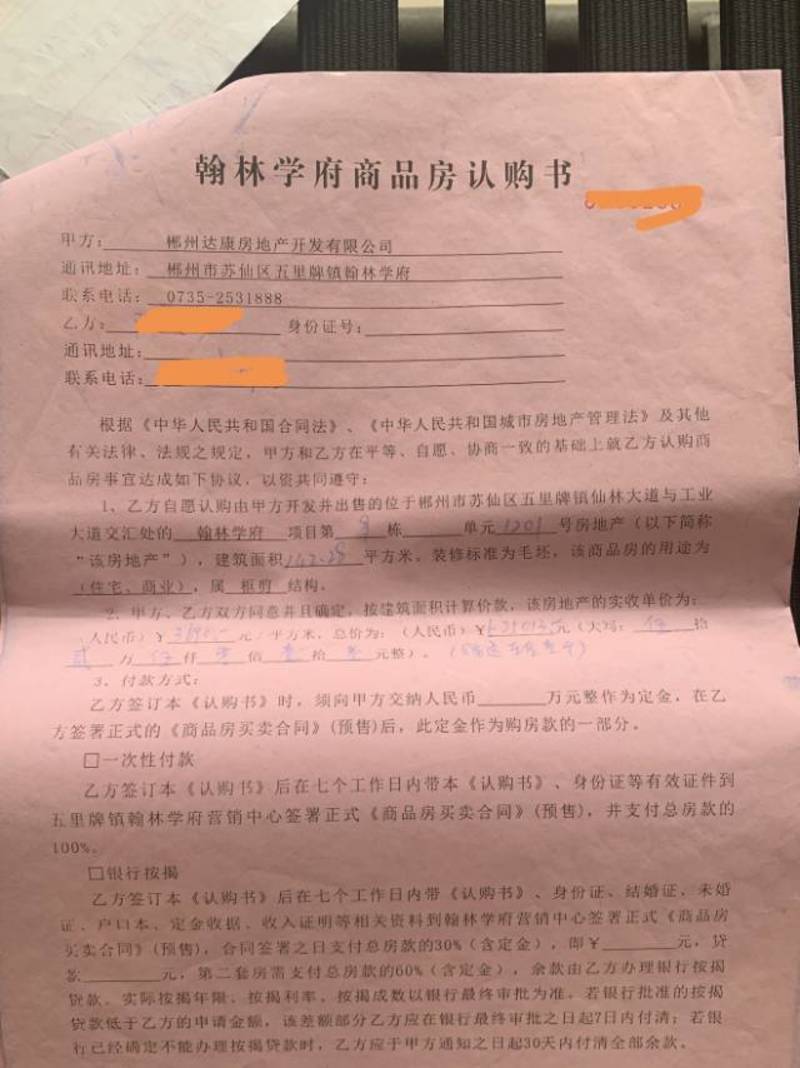 翰林学府商品房认购书
甲方：郴州达康房地产开发有限公司
通讯地址：郴州市苏仙区五里牌镇翰林学府
联系电话：0735-2531888
乙方： 身份证号：
通讯地址：
联系电话：
根据《中华人民共和国合同法》、《中华人民共和国城市房地产管理法》及其他
有关法律、法规之规定，甲方和乙方在平等、自愿、协商一致的基础上就乙方认购商
品房事宜达成如下协议，以资共同遵守：
1、乙方自愿认购由甲方开发并出售的位于郴州市苏仙区五里牌镇仙林大道与工业
大道交汇处的 翰林学府 项目第 栋 单元 1201 号房地产（以下简称
“该房地产”），建筑面积 平方米，装修标准为毛坯，该商品房的用途为
（住宅、商业），属 框剪 结构。
2、甲方、乙方双方同意并且确定，按建筑面积计算价款，该房地产的实收单价为：
（人民币）￥ 元／平方米，总价为：（人民币）￥ 元（大写： 伍 拾
贰 万 仟 佰 壹 拾 元整）。
3、付款方式：
乙方签订本《认购书》时，须向甲方交纳人民币 万元整作为定金，在乙
方签署正式的《商品房买卖合同》(预售)后，此定金作为购房款的一部分。
□一次性付款
乙方签订本《认购书》后在七个工作日内带本《认购书》、身份证等有效证件到
五里牌镇翰林学府营销中心签署正式《商品房买卖合同》(预售)，并支付总房款的
100%。
□银行按揭
乙方签订本《认购书》后在七个工作日内带《认购书》、身份证、结婚证、未婚
证、户口本、定金收据、收入证明等相关资料到翰林学府营销中心签署正式《商品房
买卖合同》(预售)，合同签署之日支付总房款的30%（含定金），即￥ 元，贷
款 元，第二套房需支付总房款的60%（含定金），余款由乙方办理银行按揭
贷款。实际按揭年限、按揭利率、按揭成数以银行最终审批为准，若银行批准的按揭
贷款低于乙方的申请金额，该差额部分乙方应在银行最终审批之日起7日内付清；若银
行已经确定不能办理按揭贷款时，乙方应于甲方通知之日起30天内付清全部余款。